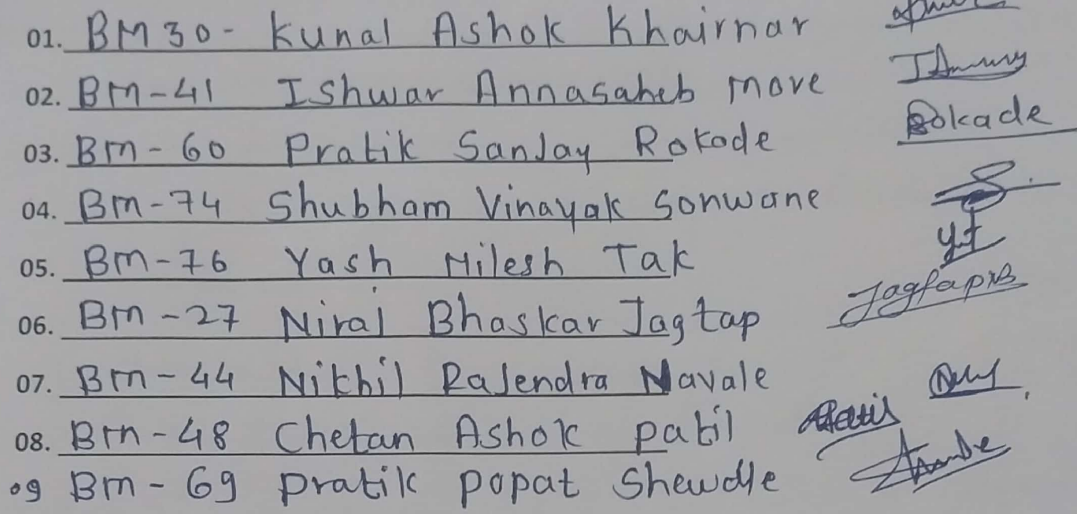 01. BM30- Kunal Ashok Khairnar
02. BM-41 Ishwar Annasaheb more
03. Bm-60 Pratik Sanjay Rokode Rokade
04. Bm-74 Shubham Vinayak Sonwane
05. Bm-76 Yash Nilesh Tak
06. Bm-27 Niraj Bhaskar Jagtap Jagtap
07. Bm-44 Nikhil Rajendra Navale
08. Bm-48 Chetan Ashok patil
09 Bm-69 Pratik popat Shewdle